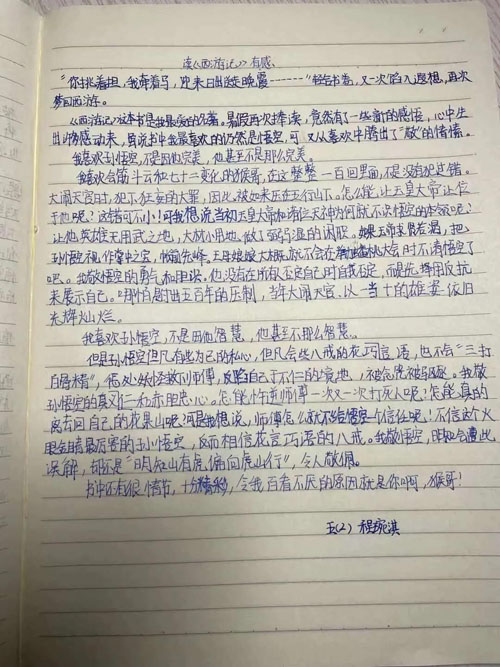 读《西游记》有感
"你挑着担，我牵着马，迎来日出送走晚霞------"轻合书卷，又一次陷入遐想，再次
梦回西游。
《西游记》这本书是我最爱的名著。暑假再次捧读，竟然有了一些新的感悟，心中生
出感动来，虽说书中我最喜欢的仍然是悟空，可又从喜欢中腾出了"敬"的情愫。
我喜欢孙悟空，不是因他完美，他甚至不是那么完美。
我喜欢会筋斗云和七十二变化的猴哥，在这整整一百回里面，不是没有犯过错。
大闹天宫时，犯下狂妄的大罪，因此，被如来压在五行山下。怎么能让玉皇大帝让位
于他呢？这错可不小！可我想说，当初玉皇大帝和诸位天神为何就不识悟空的本领呢？
让他英雄无用武之地，大材小用地做了弼马温的闲职。如果玉帝求贤若渴，把
孙悟空视作掌中之宝，惜前先峰，王母娘娘大概就不会在蟠桃大会时不请悟空了
吧。我敬悟空的勇气和胆识，他没有在所有人否定自己时自我否定，而是选择用反抗
来展示自己。哪怕是付出五百年的压制，当年大闹天宫、以一当十的雄姿依旧
光辉灿烂。
我喜欢孙悟空，不是因他智慧，他甚至不那么智慧。
但是孙悟空但凡有些为己的私心，但凡会些八戒的花巧言语，也不会"三打
白骨精"，处处妖怪救师傅，反陷自己于不仁的境地，被念咒被驱逐。我敬
孙悟空的真诚和赤胆忠心。怎能忤逆师傅一次一次打死人呢？怎能真的
离去回自己的花果山呢？可是我想说，师傅怎么就不给悟空一点信任呢！不信这个火
眼金睛最厉害的孙悟空，反而相信花言巧语的八戒。我敬悟空，明知会遭此
误解，却还是"明知山有虎，偏向虎山行"，令人敬佩。
书中还有很情节，十分精彩，令我百看不厌的原因就是你啊，猴哥！
五(2) 程琬淇